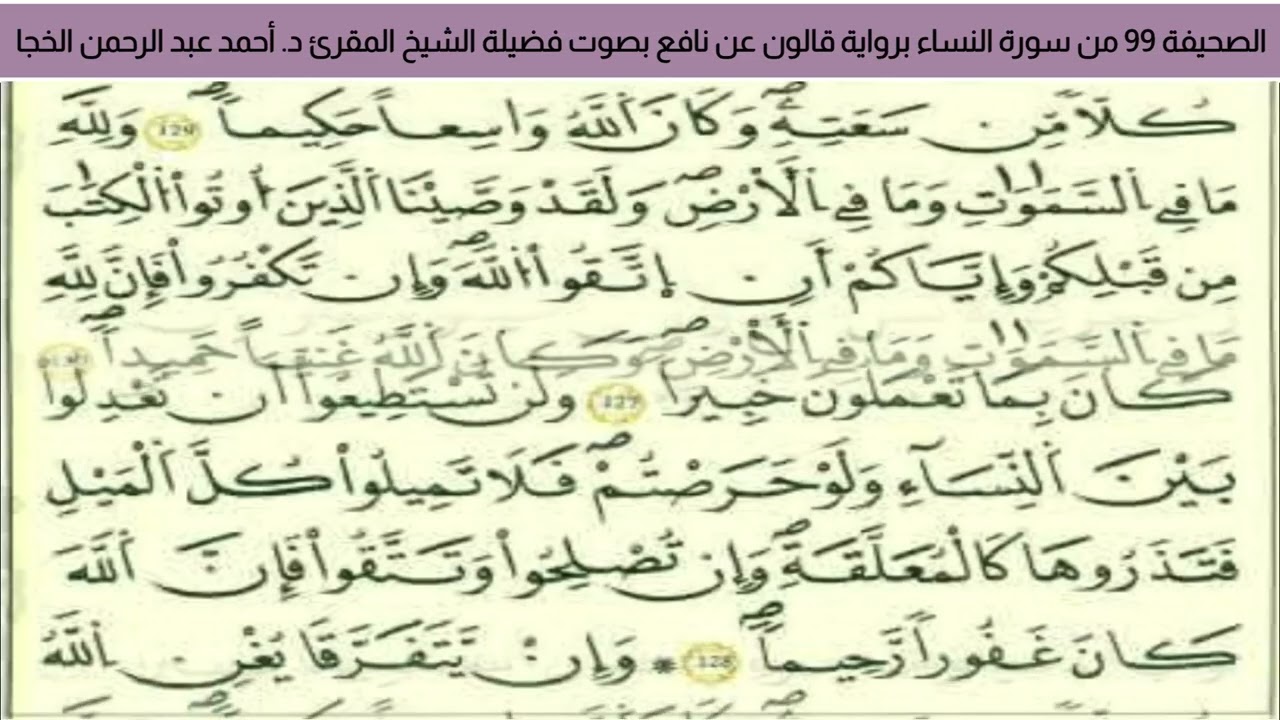 الصحيفة 99 من سورة النساء برواية قالون عن نافع بصوت فضيلة الشيخ المقرئ د. أحمد عبد الرحمن الخجا
كُلّاٗ مِّن سَعَتِهِۦۖ وَكَانَ اَ۬للَّهُ وَٰسِعاً حَكِيماٗۖ 129 وَلِلهِ
مَا فِے اِ۬لسَّمَٰوَٰتِ وَمَا فِے اِ۬لَارْضِۖ وَلَقَدْ وَصَّيْنَا اَ۬لذِينَ أُوتُواْ اُ۬لْكِتَٰبَ
مِن قَبْلِكُمْ وَإِيَّاكُمْ أَنِ اِ۪تَّقُواْ اُ۬للَّهَۖ وَإِن تَكْفُرُواْ فَإِنَّ لِلهِ
مَا فِے اِ۬لسَّمَٰوَٰتِ وَمَا فِے اِ۬لَارْضِۖ وَكَانَ اَ۬للَّهُ غَنِيّاً حَمِيداٗۖ
كَانَ بِمَا تَعْمَلُونَ خَبِيراٗ 127 وَلَن تَسْتَطِيعُواْ أَن تَعْدِلُواْ
بَيْنَ اَ۬لنِّسَآءِ وَلَوْ حَرَصْتُمْۖ فَلَا تَمِيلُواْ كُلَّ اَ۬لْمَيْلِ
فَتَذَرُوهَا كَالْمُعَلَّقَةِۖ وَإِن تُصْلِحُواْ وَتَتَّقُواْ فَإِنَّ اَ۬للَّهَ
كَانَ غَفُوراٗ رَّحِيماٗۖ 128 * وَإِنْ يَّتَفَرَّقَا يُغْنِ اِ۬للَّهُ